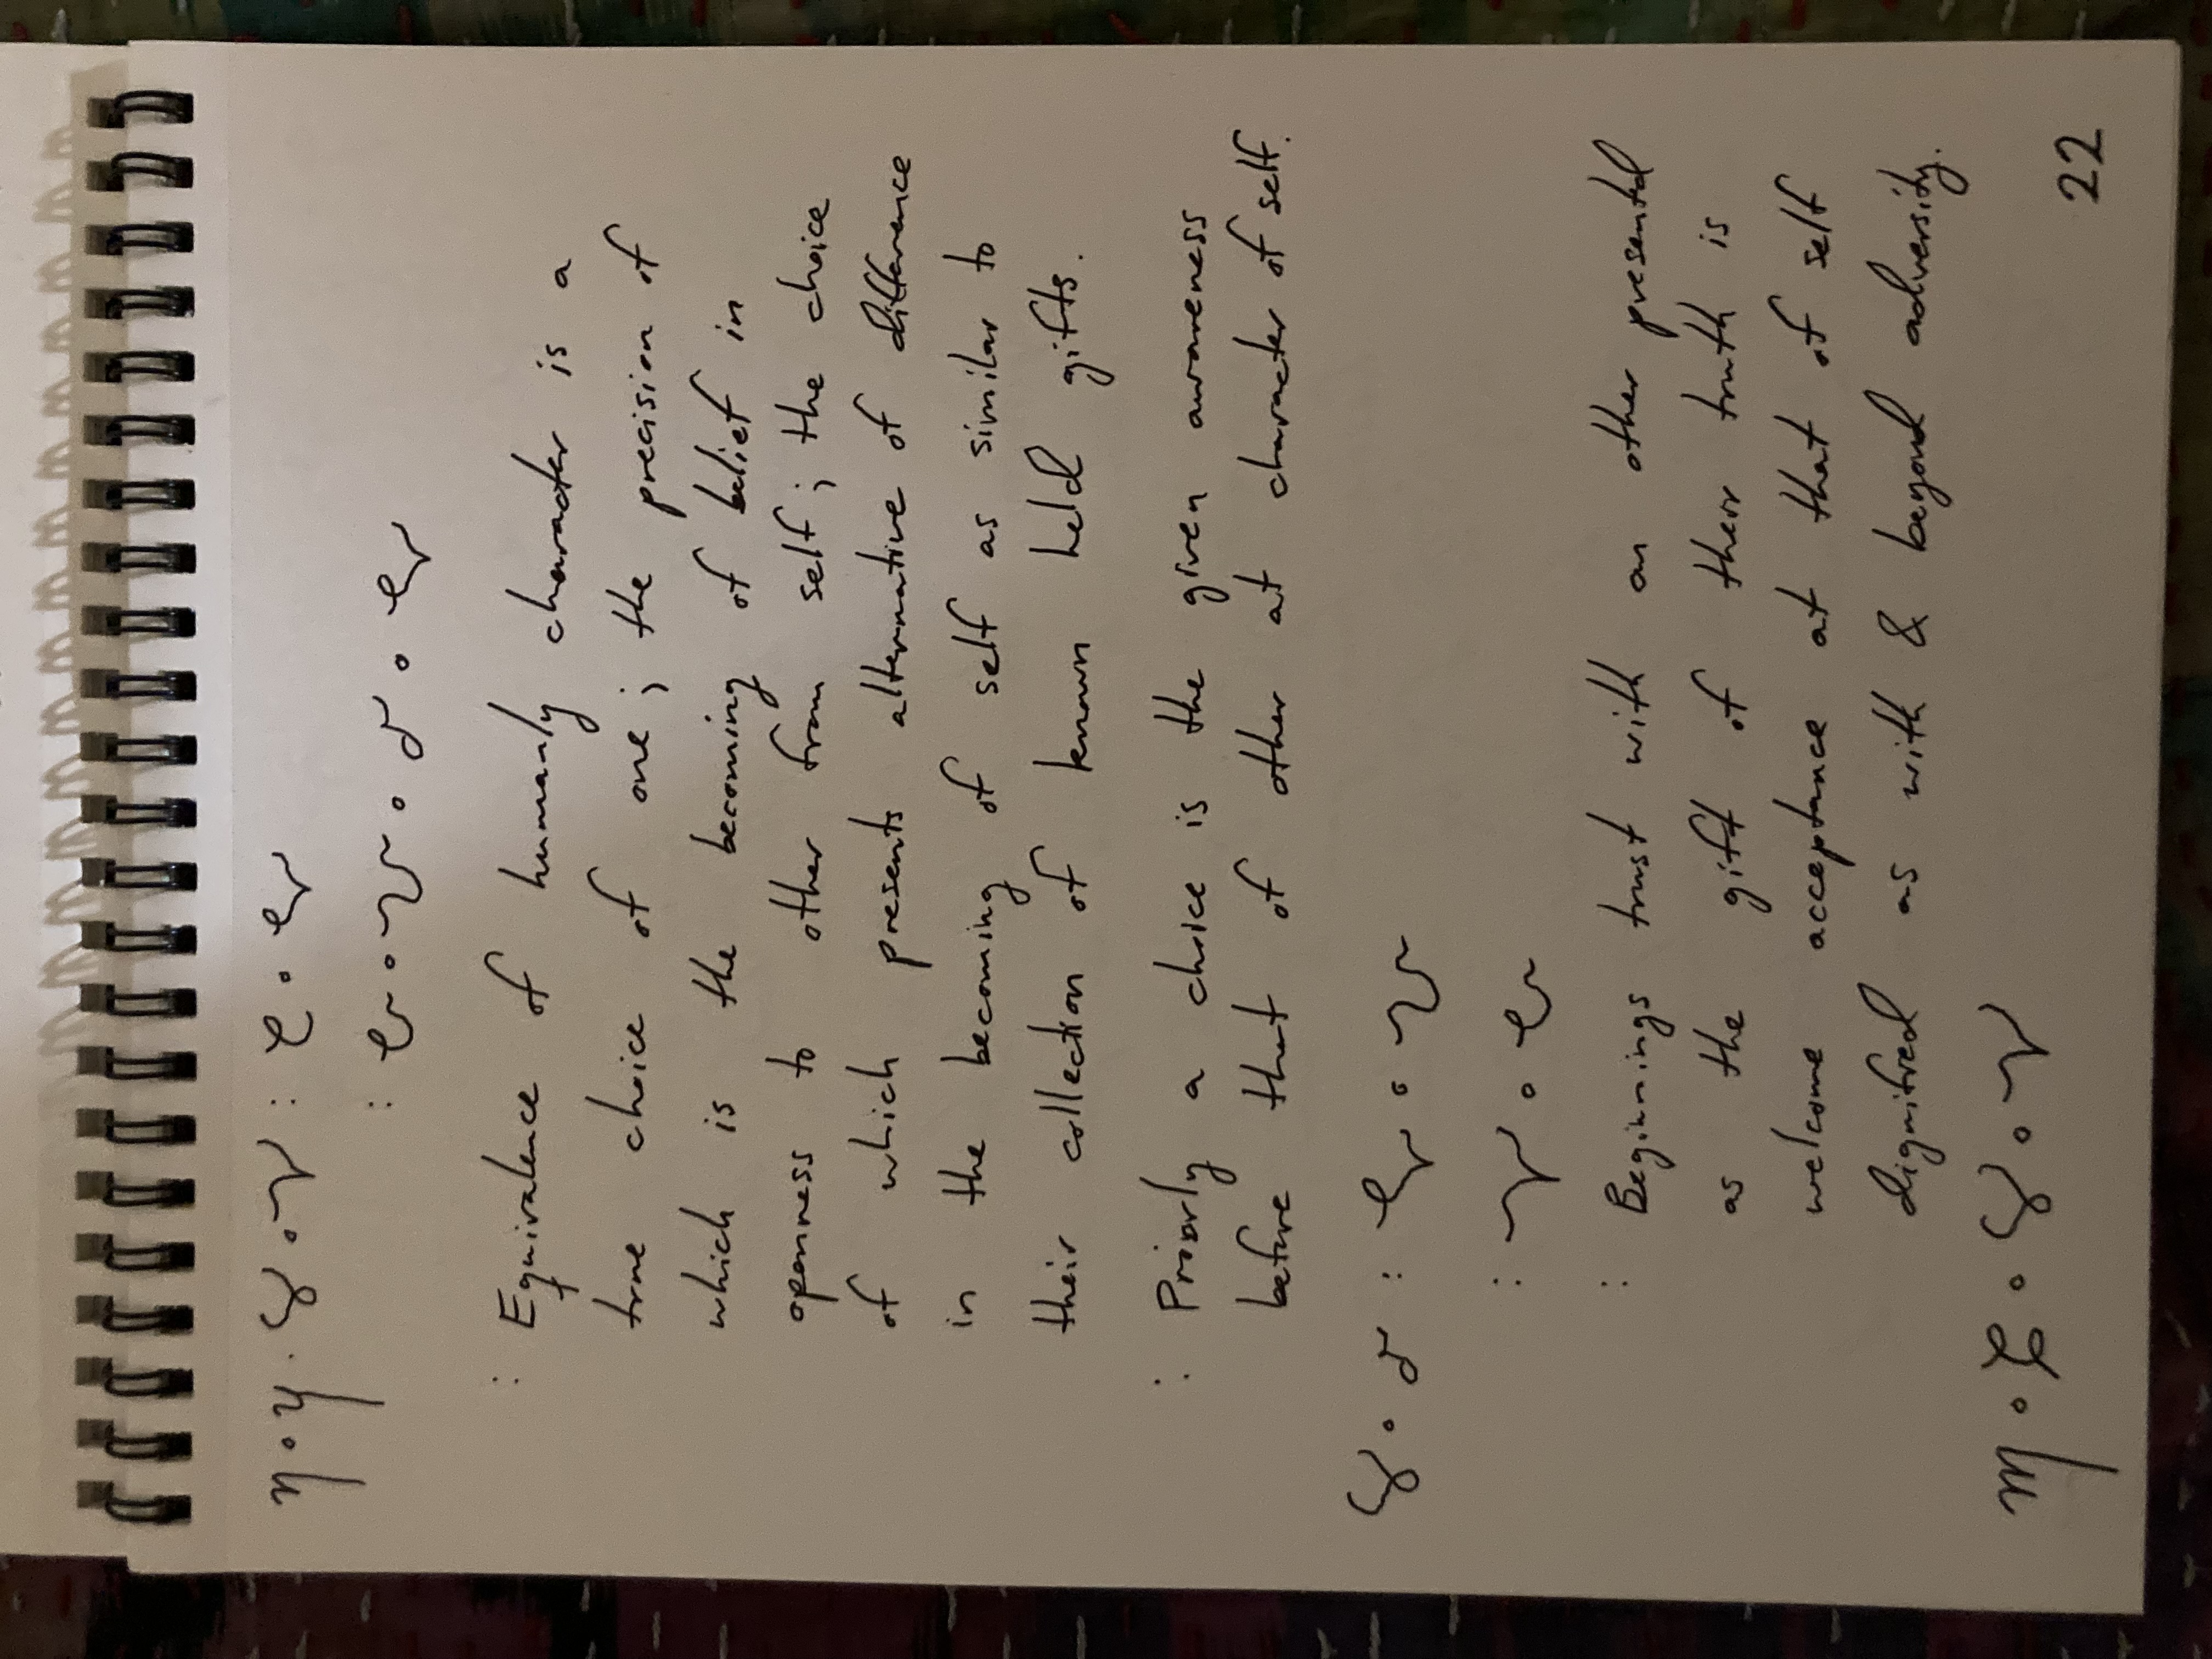 : Equivalence of humanly character is a
true choice of one; the precision of
which is the becoming of belief in
openness to other from self; the choice
of which presents alternative of difference
in the becoming of self as similar to
their collection of known held gifts.
: Priorly a choice is the given awareness
before that of other at character of self.
: Beginnings trust with an other presented
as the gift of their truth is
welcome acceptance at that of self
dignified as with & beyond adversity.
22